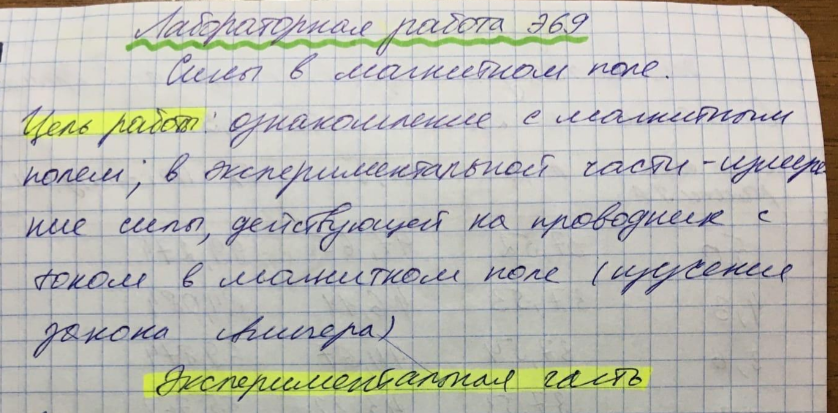 Лабораторная работа Э69
Силы в магнитном поле.
Цель работы: ознакомление с магнитным
полем; в экспериментальной части - измере
ние силы, действующей на проводник с
током в магнитном поле (изучение
закона Ампера)
Экспериментальная часть